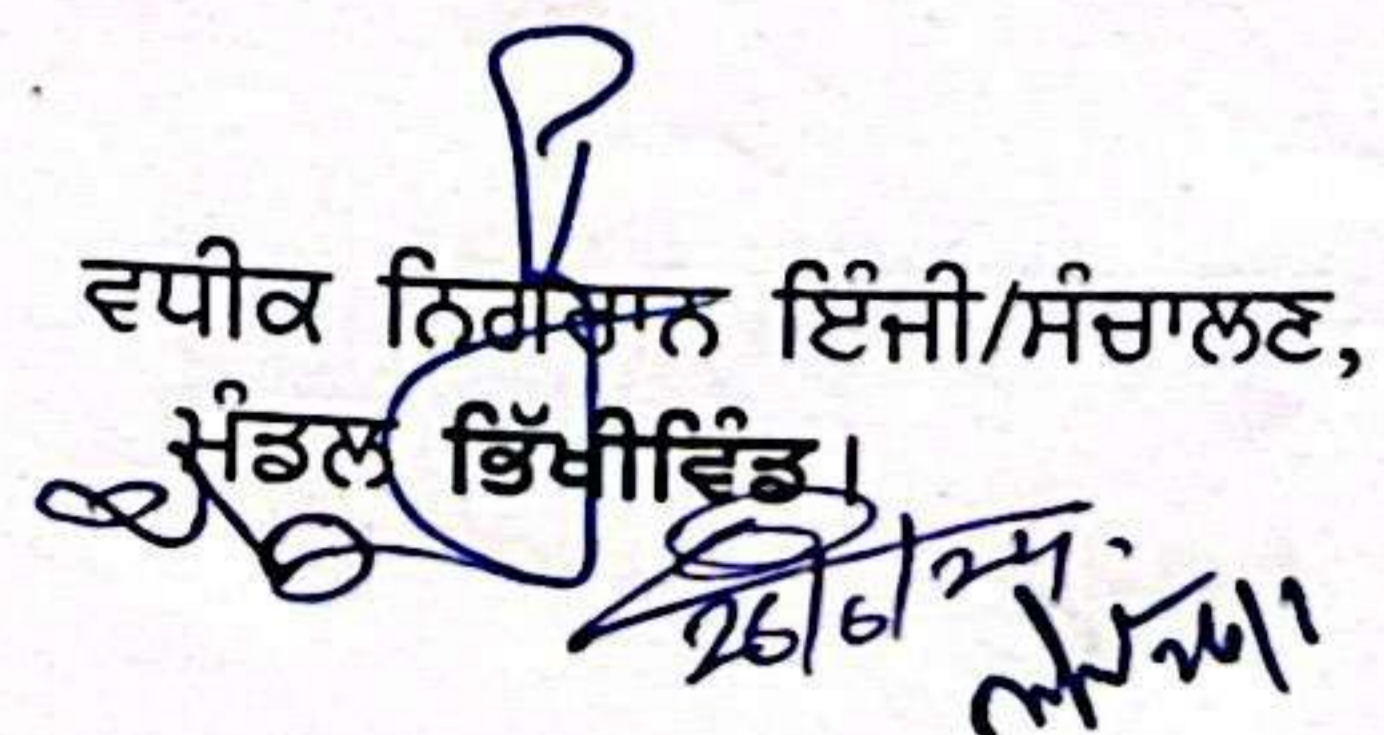 ਵਧੀਕ ਨਿਗਰਾਨ ਇੰਜੀ/ਸੰਚਾਲਣ,
ਮੰਡਲ ਭਿੱਖੀਵਿੰਡ।
26/6/24